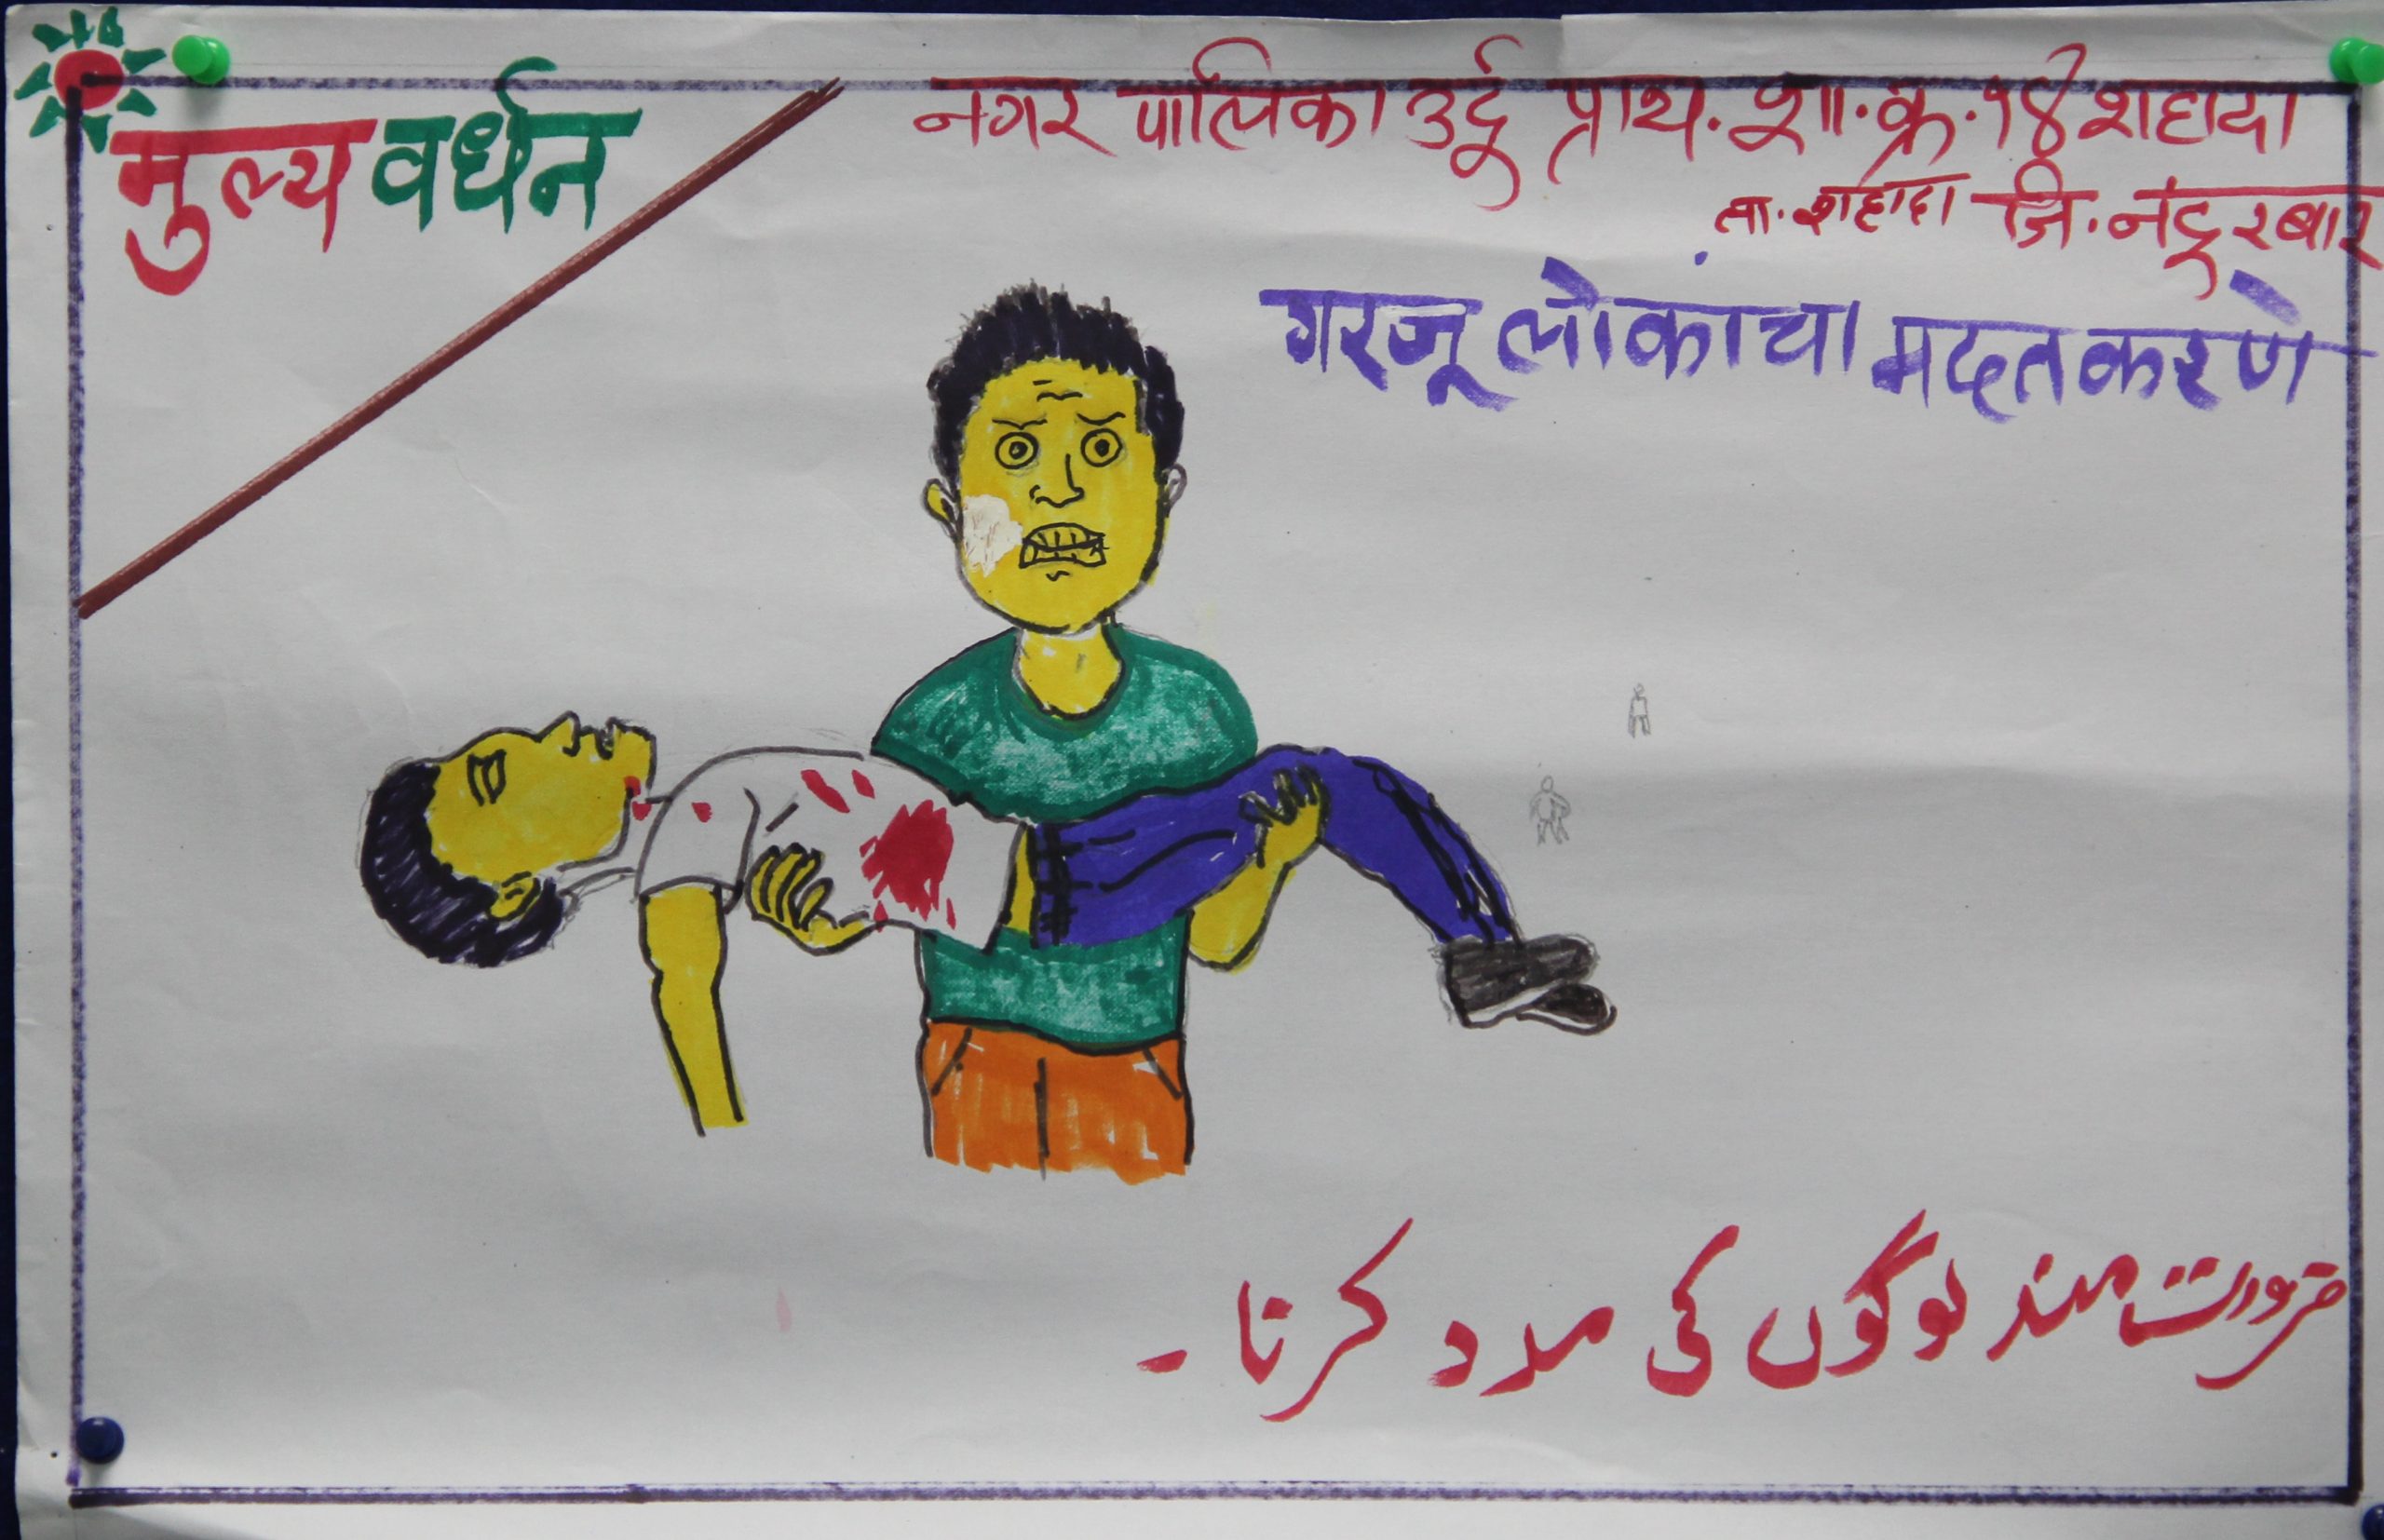 मुल्यवर्धन
नगर पालिका उर्दु प्राथ. शा. क्र. १४ शहादा
ता. शहादा जि. नंदुरबार
गरजू लोकांचा मदत करणे
ضرورت مند لوگوں کی مدد کرنا۔